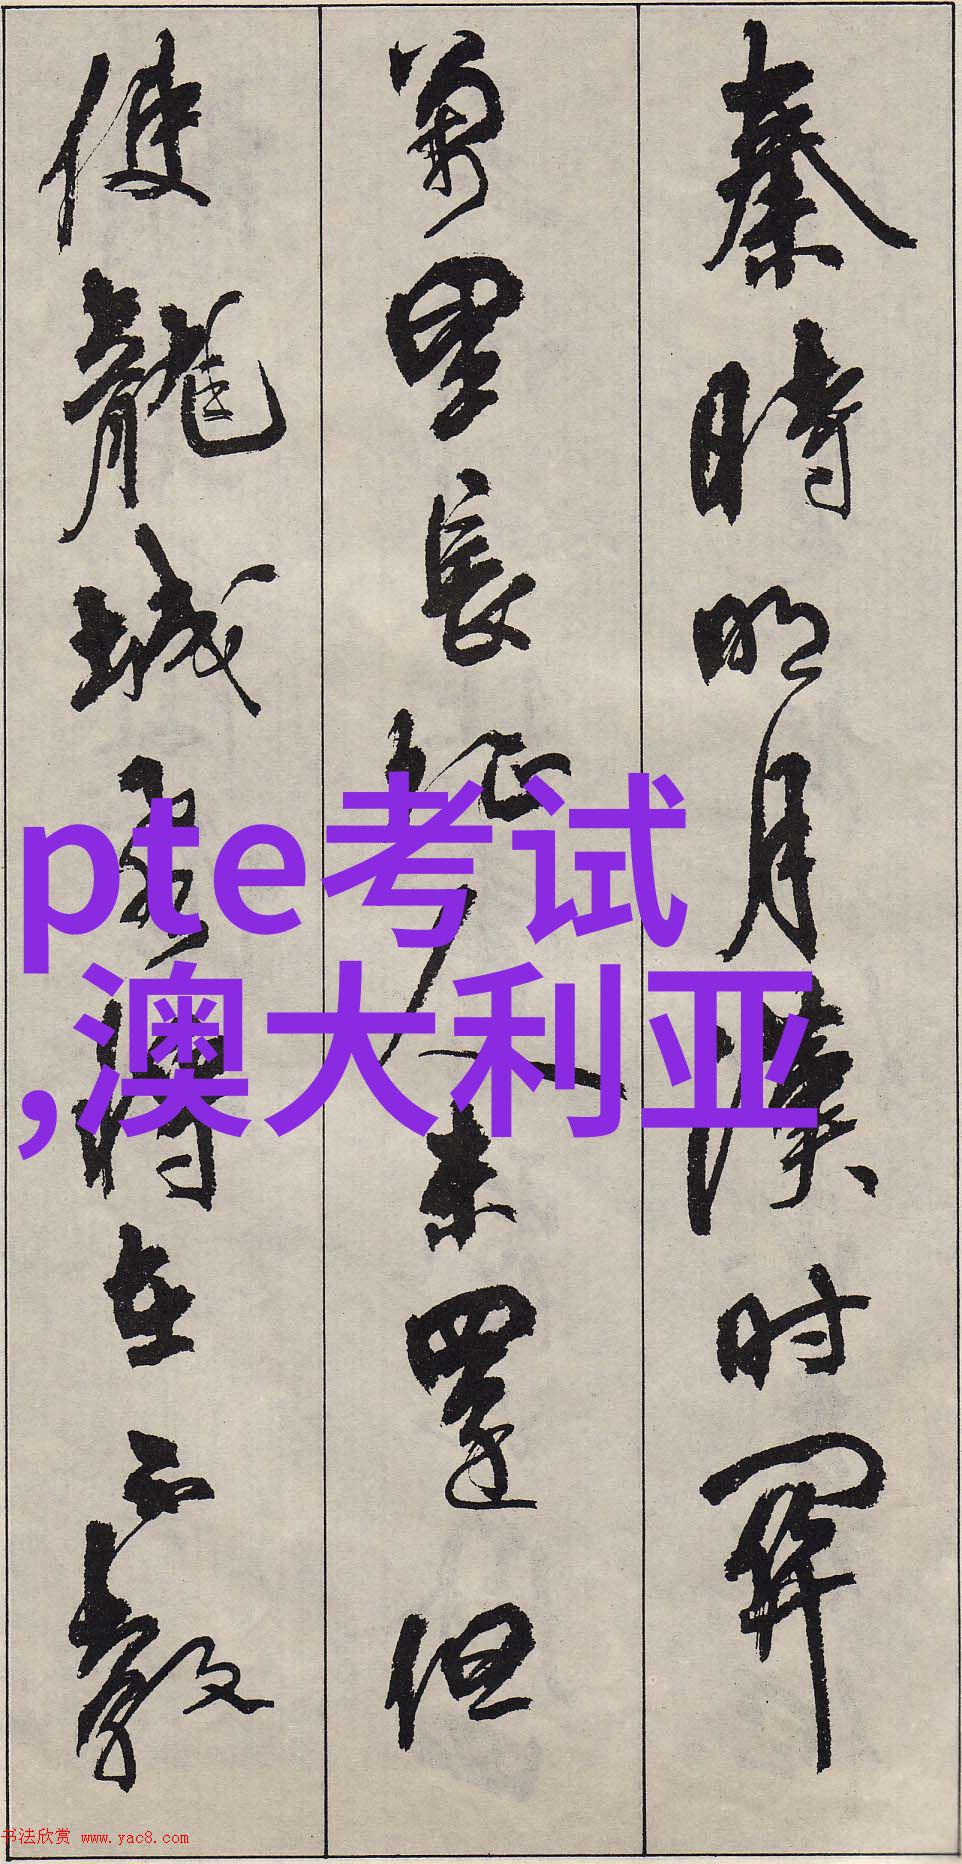 秦時明月漢时関
萬里長征人未還但
使龍城飛将在不教
pte考试
,澳大利亚
书法欣赏 www.yac8.com